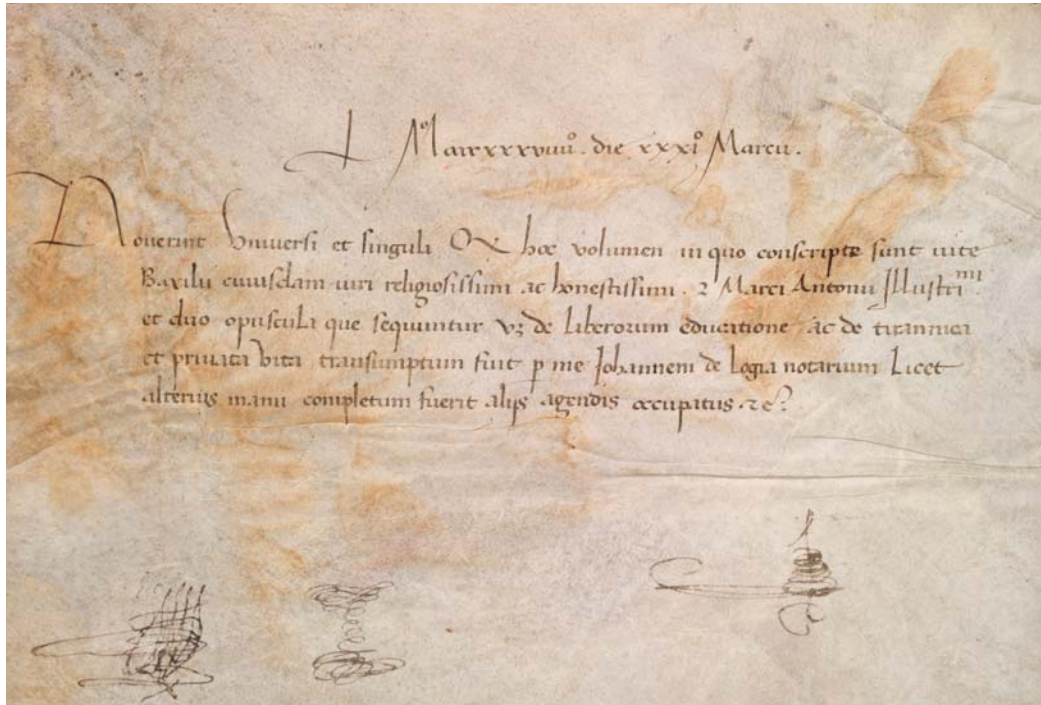 Mº ccccxxxxviiiiº. die xxxiº Marcii.
Nouerint Vniuersi et singuli Qx hoc volumen in quo conscripte sunt uite
Baxilii cuiusdam uiri religiosissimi ac honestissimi. 2 Marci Antonii Illustrimi.
et duo opuscula que sequuntur vz de liberorum educatione ac de tirannica
et priuata vita transumptum fuit p me Johannem de Logia notarium Licet
alterius manu completum fuerit alijs agendis occupatus. 2c?